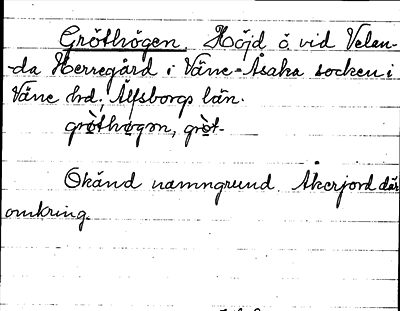 Gröthögen. Höjd ö. vid Velan-
-da Herregård i Väne-Åsaka socken i
Väne hd; Älfsborgs län.
gröthögən, gröt-
Okänd namngrund. Åkerjord där
omkring.